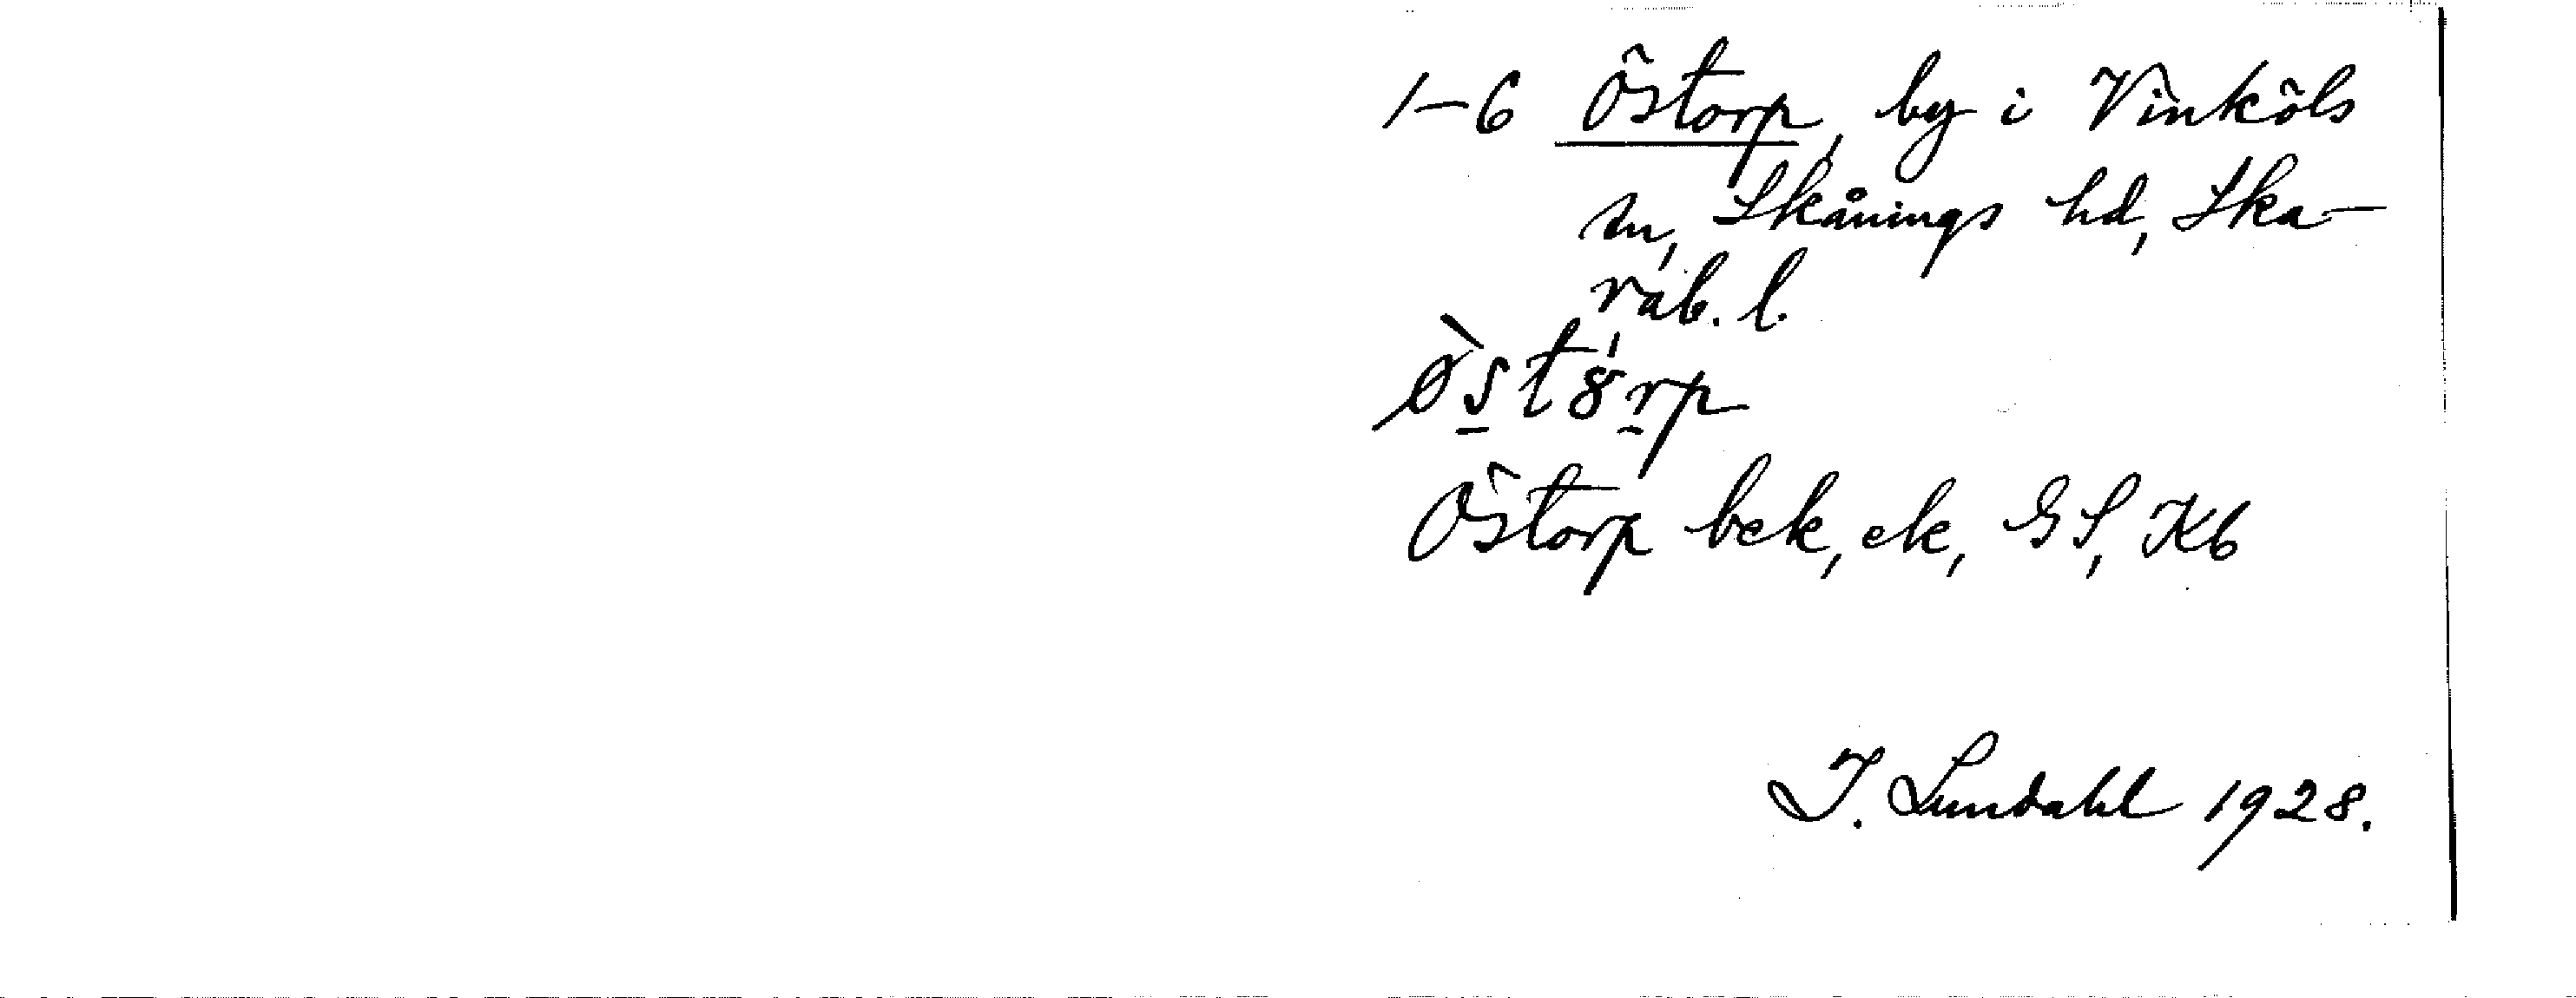 1-6 Östorp, by i Vinköls
sn, Skånings hd, Ska-
rab. l.
Östorp bek, ek, GS, Kb
I. Lundahl 1928.